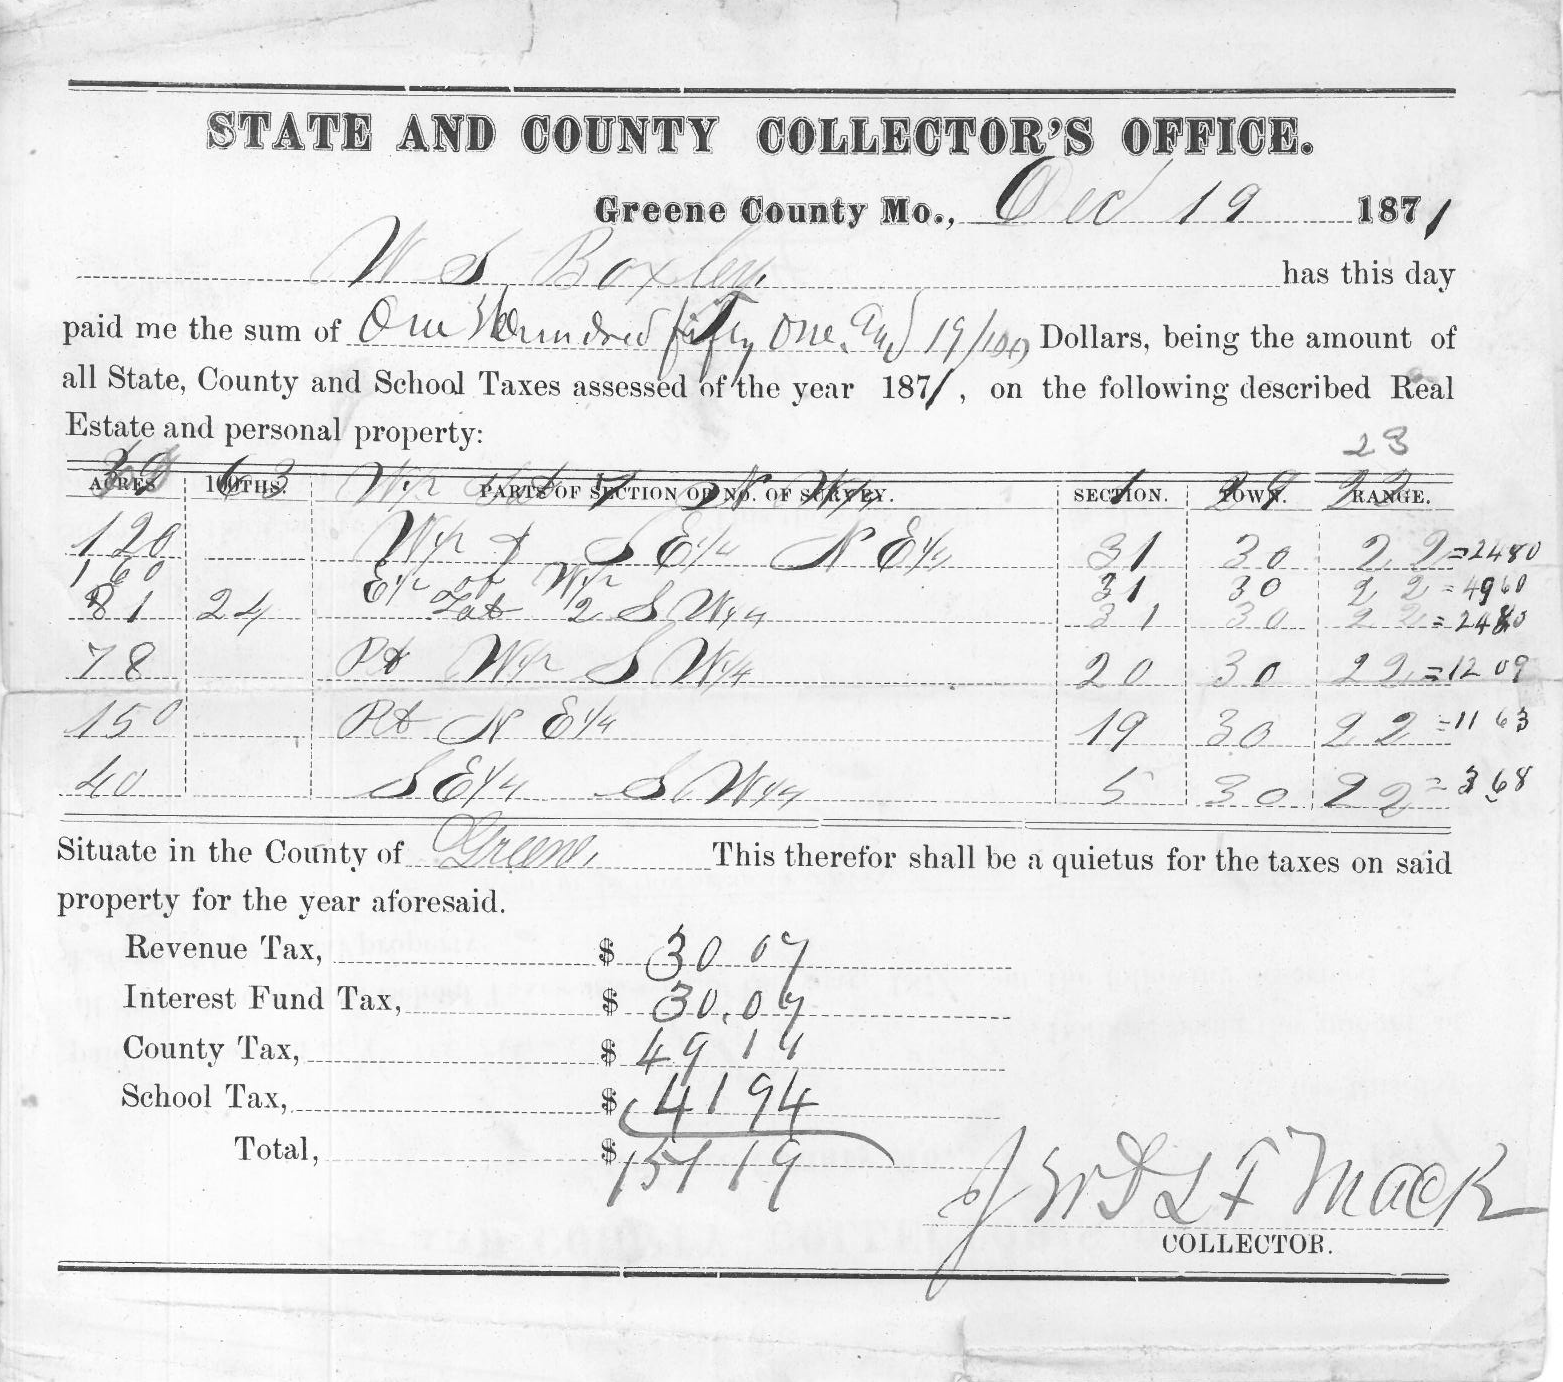 STATE AND COUNTY COLLECTOR'S OFFICE.
Greene County Mo., Dec 19 1871
W S Boxley. has this day
paid me the sum of One Hundred fifty one. and 19/100 Dollars, being the amount of
all State, County and School Taxes assessed of the year 1871, on the following described Real
Estate and personal property:
23
ACRES 100THS. PARTS OF SECTION OR NO. OF SURVEY. SECTION. TOWN. RANGE.
63 W 1/2 Lot 7 N W 1/4 1 29 22
120 W 1/2 & S E 1/4 N E 1/4 31 30 22 = 2480
160 E 1/2 of W 1/2 31 30 22 = 4960
81 24 Lot 2 S W 1/4 31 30 22 = 2480
78 Pt W 1/2 S W 1/4 20 30 22 = 12 09
150 Pt N E 1/4 19 30 22 = 11 63
40 S E 1/4 S W 1/4 5 30 22 = 3 68
Situate in the County of Greene. This therefor shall be a quietus for the taxes on said
property for the year aforesaid.
Revenue Tax, $ 30 07
Interest Fund Tax, $ 30.07
County Tax, $ 49 11
School Tax, $ 41 94
Total, $ 151 19
J W D L F Mack
COLLECTOR.